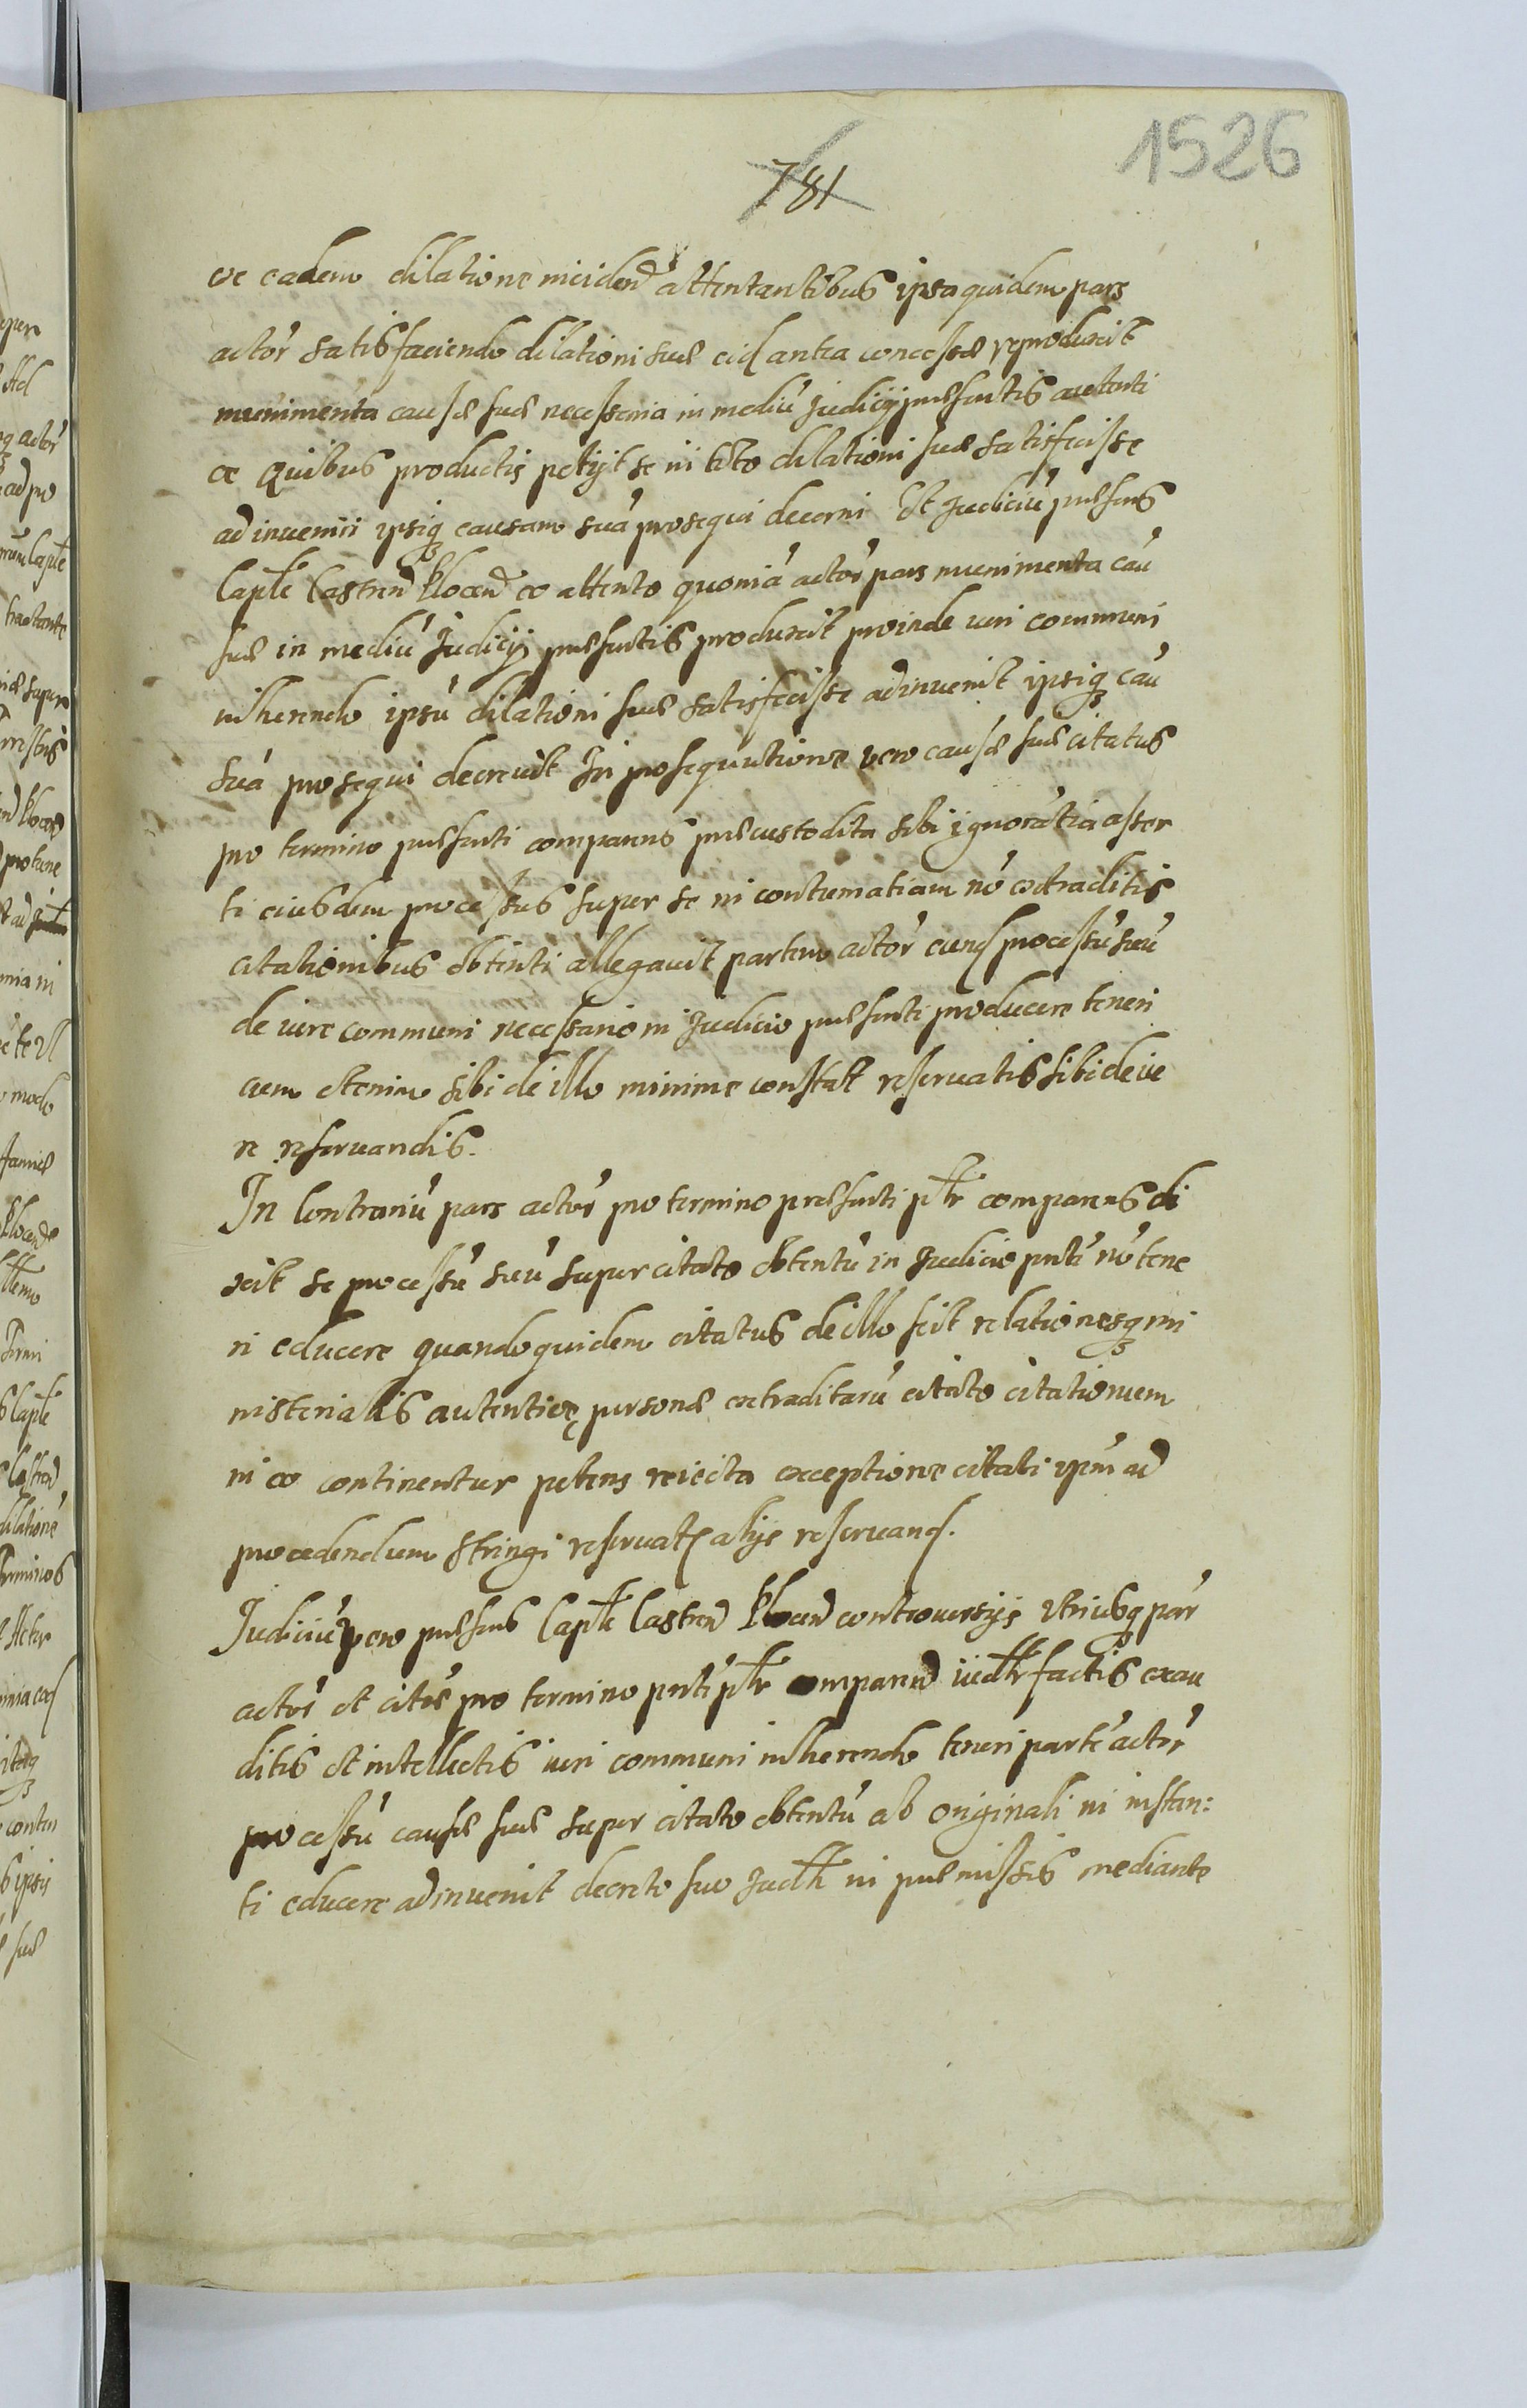 1526
781
ve eadem dilatione inciden͠d attentantibus ipsa quidem pars
actor̃ satisfaciendo dilationi suæ eid antea concessæ reproduxit
munimenta causæ suæ necessaria in mediũ Judicij præsentis autenti
ce Quibus productis petijt se in toto dilationi suæ satisfecisse
adinveniri ipsiq causam suã prosequi decerni Et Judiciũ præsens
Capłe Castren Plocen eo attento quoniã actor̃ pars munimenta cau
suæ in mediũ Judicij præsentis produxit proinde iuri communi
inherendo ipsũ dilationi suæ satisfecisse adinvenit ipsiq cau
suã prosequi decrevit In prosequutione vero causæ suæ citatus
pro termino præsenti comparens præcustodita sibi ignorãtia asser
ti eiusdem processus super se in contumatiam nõ extraditis
citationibus obtenti allegavit partem actor̃ eund processũ suũ
de iure communi necessario in Judicio præsenti producere teneri
cum etenim sibi de illo minime constat reservatis sibi de iu
re reservandis.
In Contrariũ pars actor̃ pro termino præsenti ptłr comparens di
xit se processũ suũ super citato obtentũ in Judicio pnti nõ tene
ri educere quandoquidem citatus de illo scit relationesq mi
nisterialis autenticę personæ extraditarũ citato citationum
in eo continentur petens reiecta exceptione citati ipm ad
procedendum stringi reservat alijs reservand.
Judiciũ vero præsens Capłe Castren Plocen controversijs utriusq par̃
actor̃ et citæ pro termino pnti ptłr comparen iudłr factis exau
ditis et intellectis iuri communi inherendo teneri partẽ actor̃
processũ causæ suæ super citato obtentũ ab originali in instan:
ti educere adinvenit decreto suo Judłi in præmissis mediante